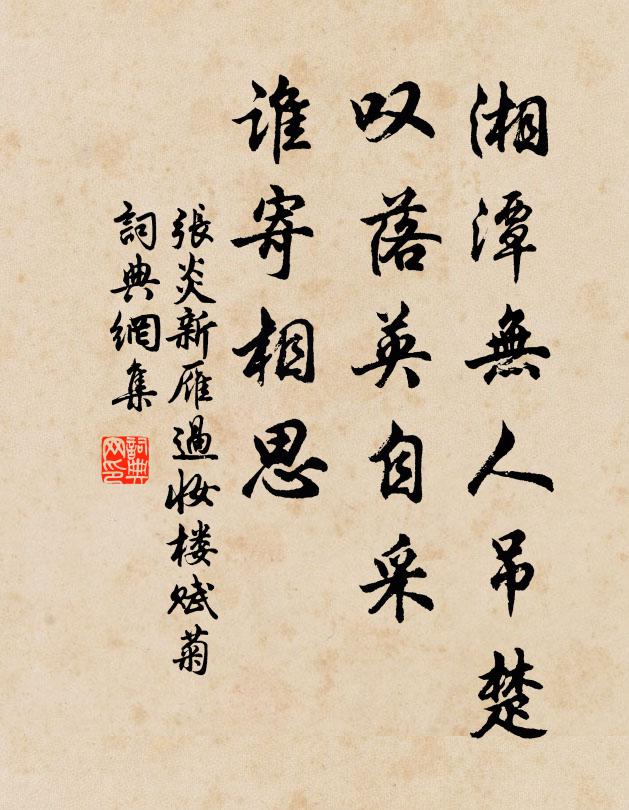 湘潭無人吊楚
叹落英自采
谁寄相思
張炎新雁過妝楼赋菊
詞典網集
詞典
网印